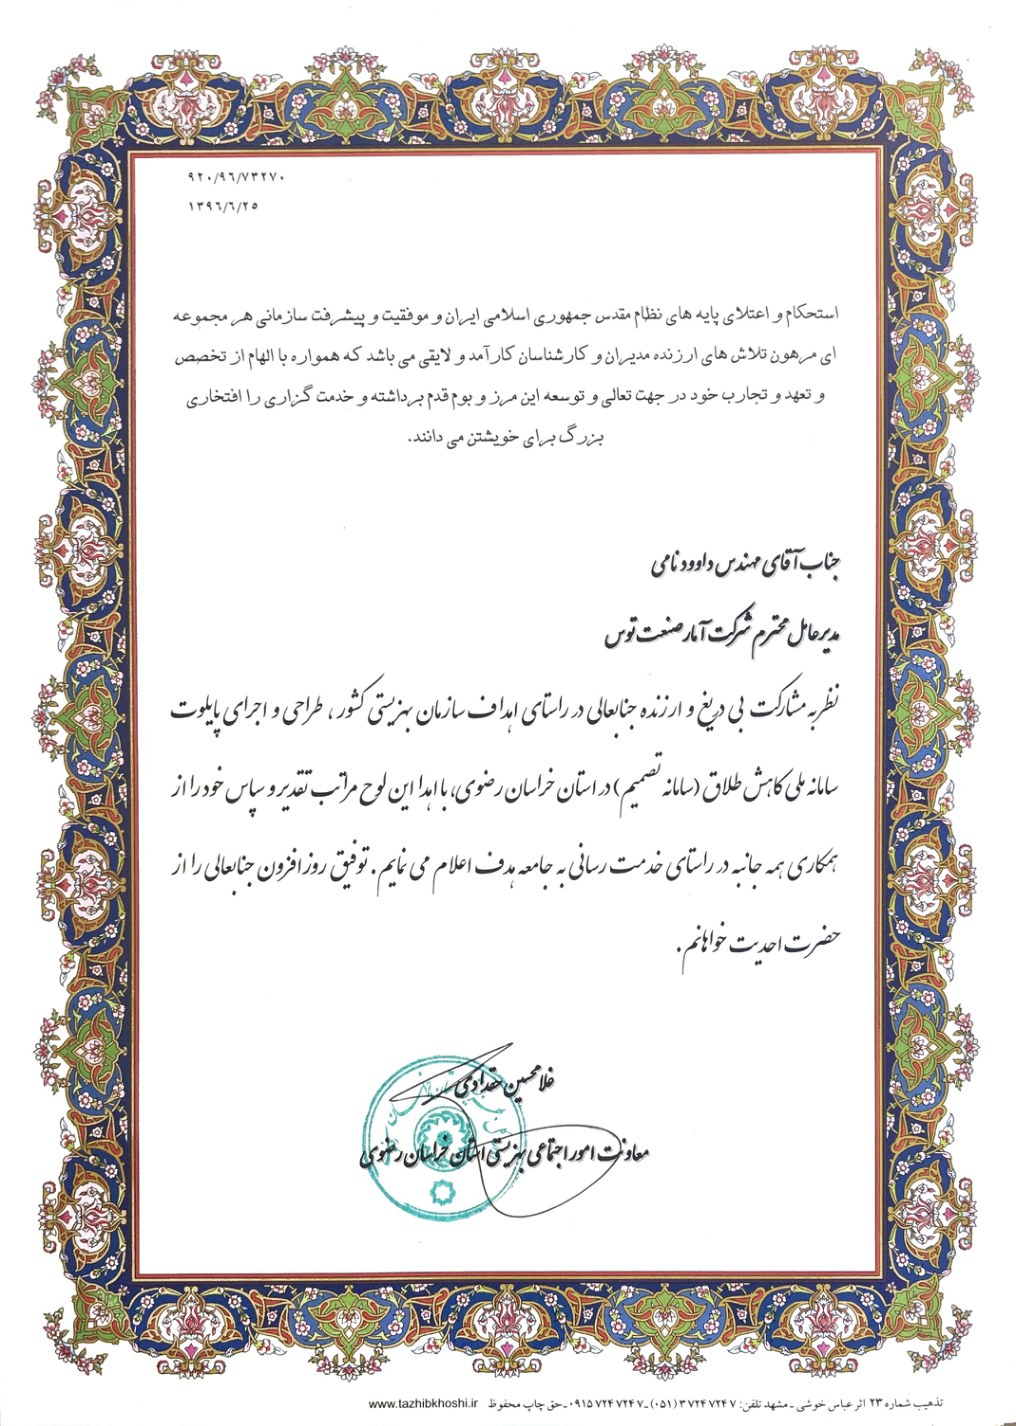 ۹۲۰/۹۶/۷۳۲۷۰
۱۳۹۶/۶/۲۵
استحکام و اعتلای پایه های نظام مقدس جمهوری اسلامی ایران و موفقیت و پیشرفت سازمانی هر مجموعه
ای مرهون تلاش های ارزنده مدیران و کارشناسان کارآمد و لایقی می باشد که همواره با الهام از تخصص
و تعهد و تجارب خود در جهت تعالی و توسعه این مرز و بوم قدم برداشته و خدمت گزاری را افتخاری
بزرگ برای خویشتن می دانند.
جناب آقای مهندس داوود نامی
مدیرعامل محترم شرکت آمار صنعت توس
نظر به مشارکت بی دریغ و ارزنده جنابعالی در راستای اهداف سازمان بهزیستی کشور، طراحی و اجرای پایلوت
سامانه ملی کاهش طلاق (سامانه تصمیم) در استان خراسان رضوی، با اهدا این لوح مراتب تقدیر و سپاس خود را از
همکاری همه جانبه در راستای خدمت رسانی به جامعه هدف اعلام می نمایم. توفیق روزافزون جنابعالی را از
حضرت احدیت خواهانم.
غلامحسین حقدادی
معاونت امور اجتماعی بهزیستی استان خراسان رضوی
تذهیب شماره ۲۳ اثر عباس خوشی - مشهد تلفن: ۳۷۲۴۷۲۴۷ (۰۵۱) - ۰۹۱۵۷۲۴۷۲۴۷ - حق چاپ محفوظ www.tazhibkhoshi.ir